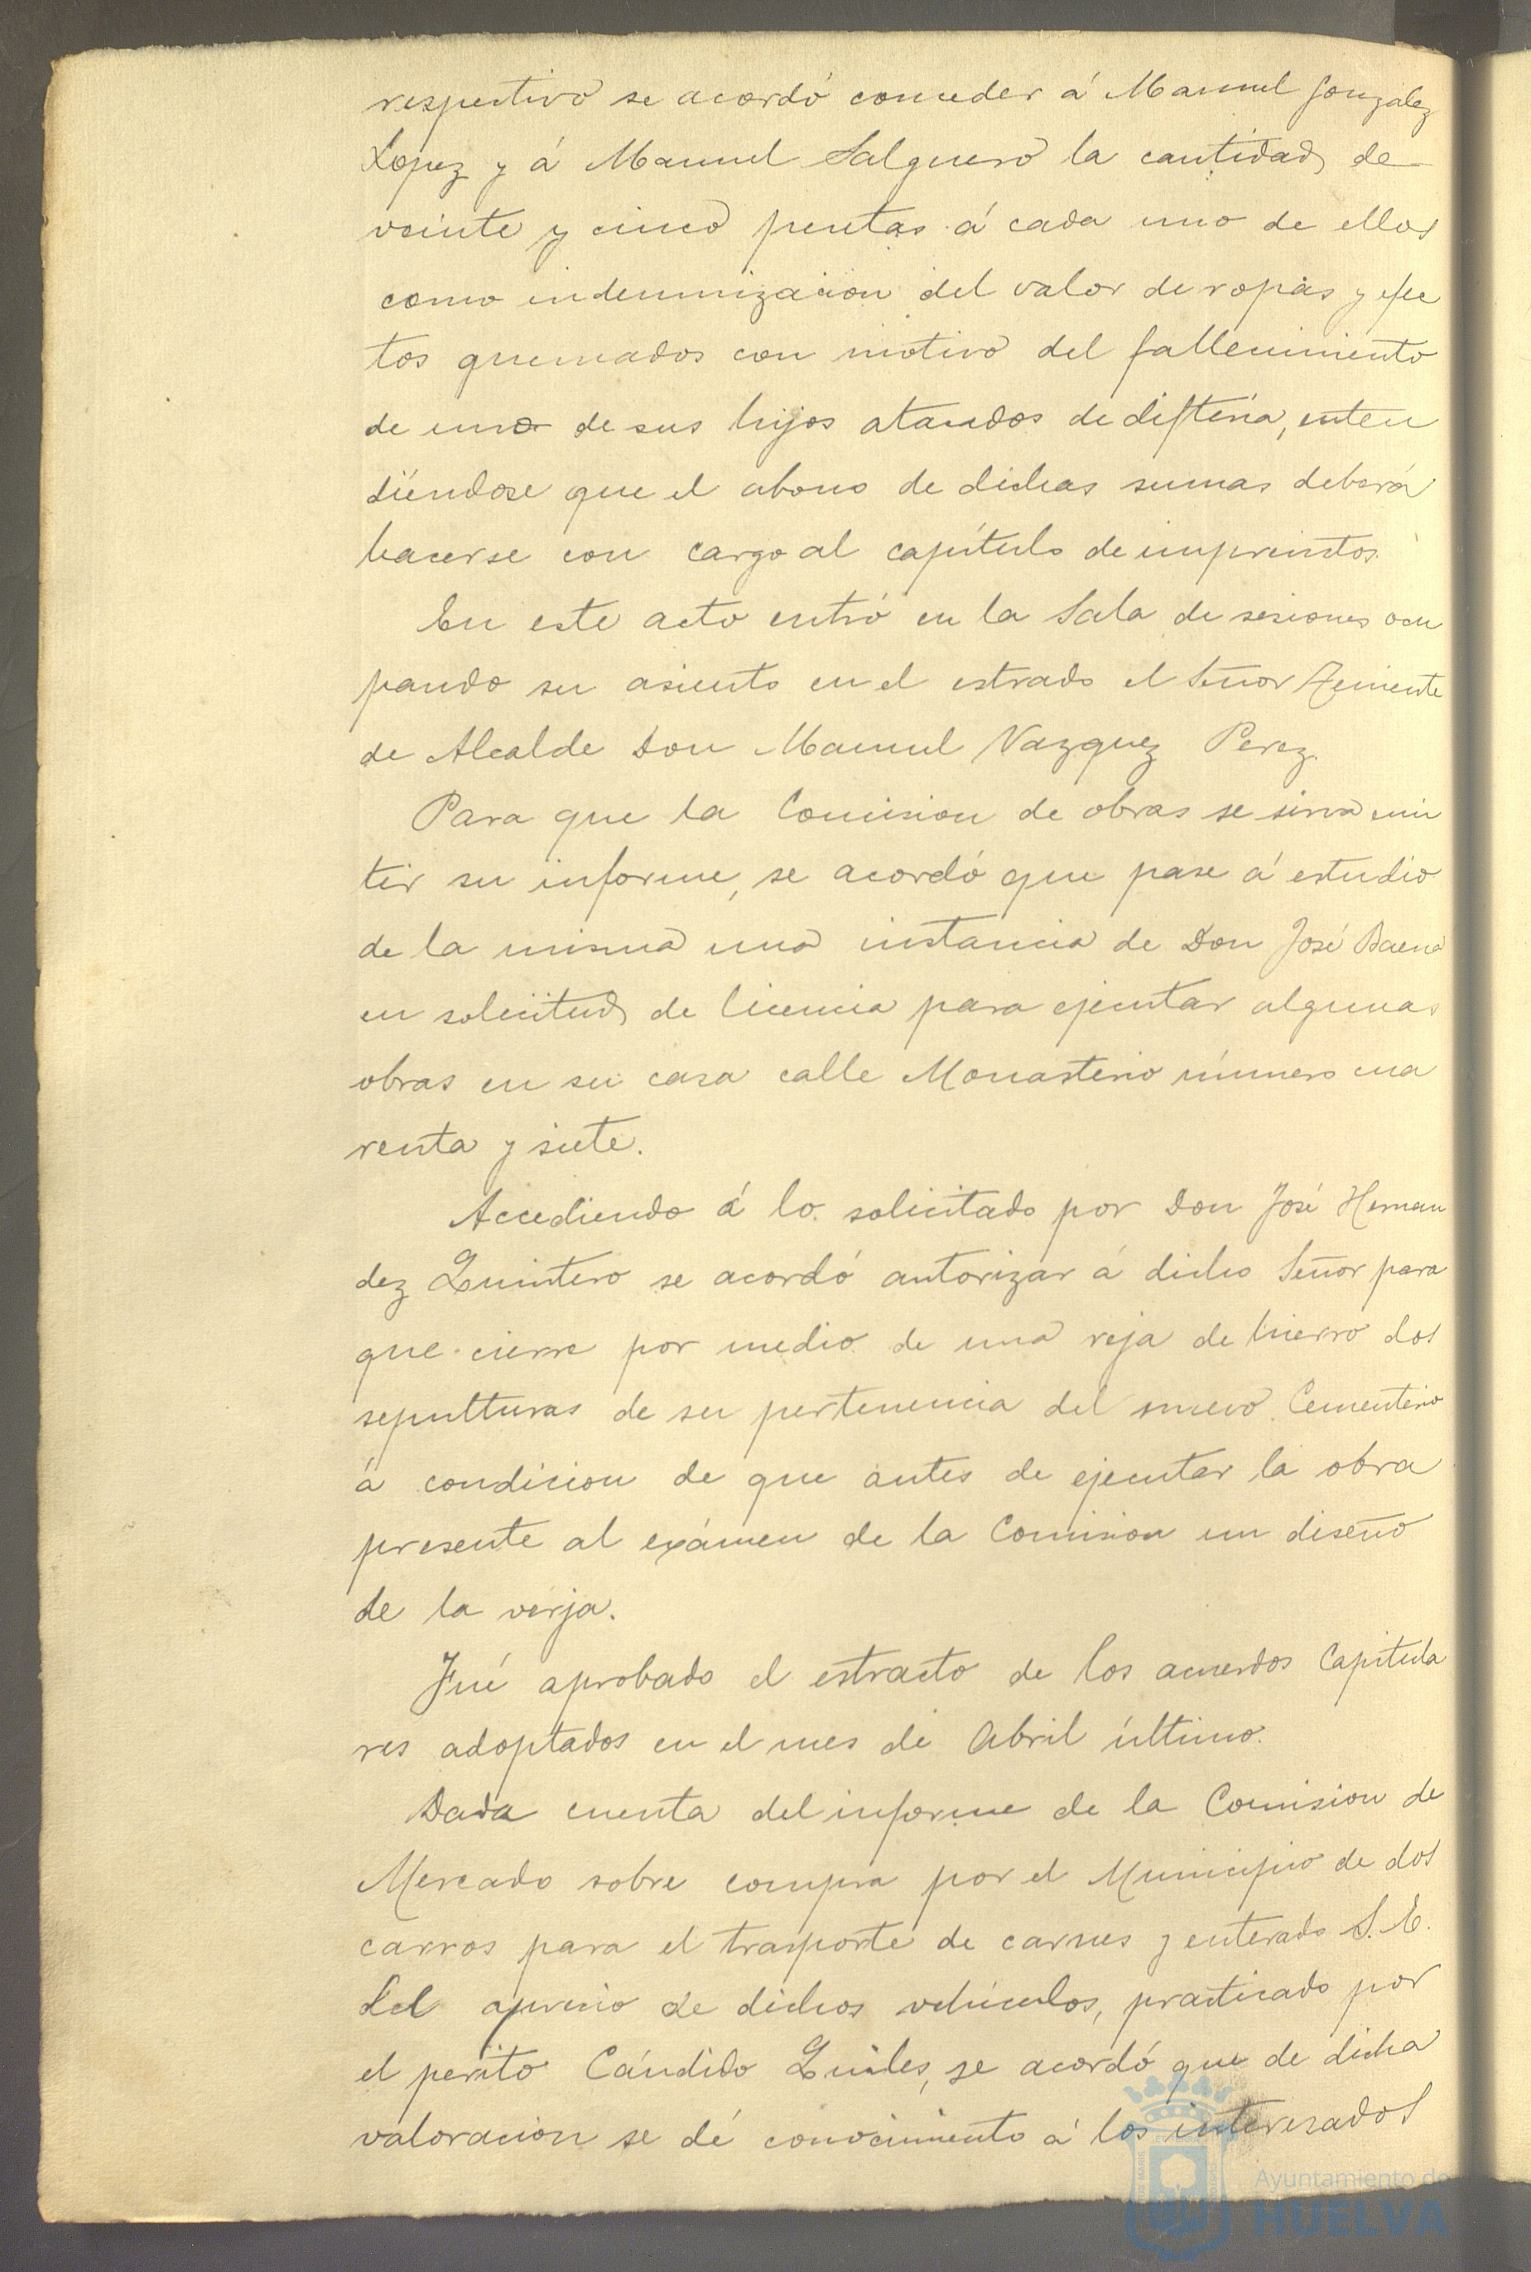 respectivo se acordó conceder á Manuel Gonzalez
Lopez y á Manuel Salguero la cantidad de
veinte y cinco pesetas á cada uno de ellos
como indemnizacion del valor de ropas y efec
tos quemados con motivo del fallecimiento
de uno de sus hijos atacados de difteria, enten
diéndose que el abono de dichas sumas deberá
hacerse con cargo al capítulo de imprevistos.
En este acto entró en la Sala de sesiones ocu
pando su asiento en el estrado el Señor Teniente
de Alcalde Don Manuel Vazquez Perez.
Para que la Comision de obras se sirva emi
tir su informe, se acordó que pase á estudio
de la misma una instancia de Don José Baena
en solicitud de licencia para ejecutar algunas
obras en su casa calle Monasterio número cua
renta y siete.
Accediendo á lo solicitado por Don José Hernan
dez Quintero se acordó autorizar á dicho Señor para
que cierre por medio de una reja de hierro dos
sepulturas de su pertenencia del nuevo Cementerio
á condicion de que antes de ejecutar la obra
presente al exámen de la Comision un diseño
de la verja.
Fué aprobado el estracto de los acuerdos Capitula
res adoptados en el mes de Abril último.
Dada cuenta del informe de la Comision de
Mercado sobre compra por el Municipio de dos
carros para el trasporte de carnes y enterado S. E.
del aprecio de dichos vehiculos, practicado por
el perito Cándido Quiles, se acordó que de dicha
valoracion se dé conocimiento á los interesados
Ayuntamiento de
HUELVA